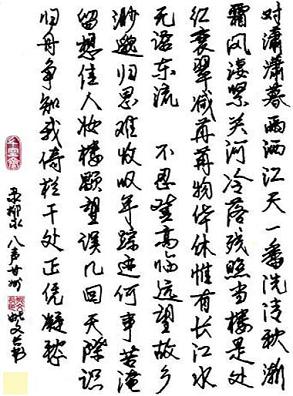 对潇潇暮雨洒江天一番洗清秋渐
霜风凄紧关河冷落残照当楼是处
红衰翠减苒苒物华休惟有长江水
无语东流 不忍登高临远望故乡
渺邈归思难收叹年踪迹何事苦淹
留想佳人妆楼颙望误几回天际识
归舟争知我倚栏干处正恁凝愁
录柳永八声甘州